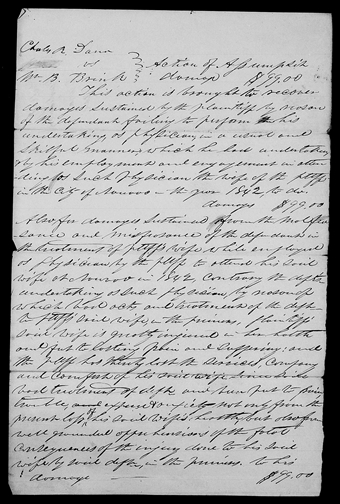 Charles R. Dana
vs
Wm B. Brink
Action of Assumpsit
damage $99.00
This action is brought to recover
damages sustained by the plaintiff by reason
of the defendant failing to perform his
undertaking, as physician, in a usual and
skilful manner, which he had undertaken
by his employment and engagement in atten
ding as such physician the wife of the pltff
in the City of Nauvoo in the year 1842 to his
damage $99.00
Also for damages sustained from the
and of the defendant in
the treatment of pltffs wife while employed
as physician by the pltff to attend his said
wife at Nauvoo in 1842, contrary the defts
undertaking as such physician, by reason of
which acts and treatment of the deft
to pltffs said wife, in the premises, plaintiffs
said wife is greatly injured in her health
and put to lasting pain and suffering, and
the pltff has thereby lost the services, company
and comfort of his said wife
treatment of deft. and been put to
trouble, and expense & anxiety not only from the
present loss of his said wifes health but also from
well grounded apprehensions of the fatal
consequences of the injury done to his said
wife by said deft, in the premises to his
damage $99.00